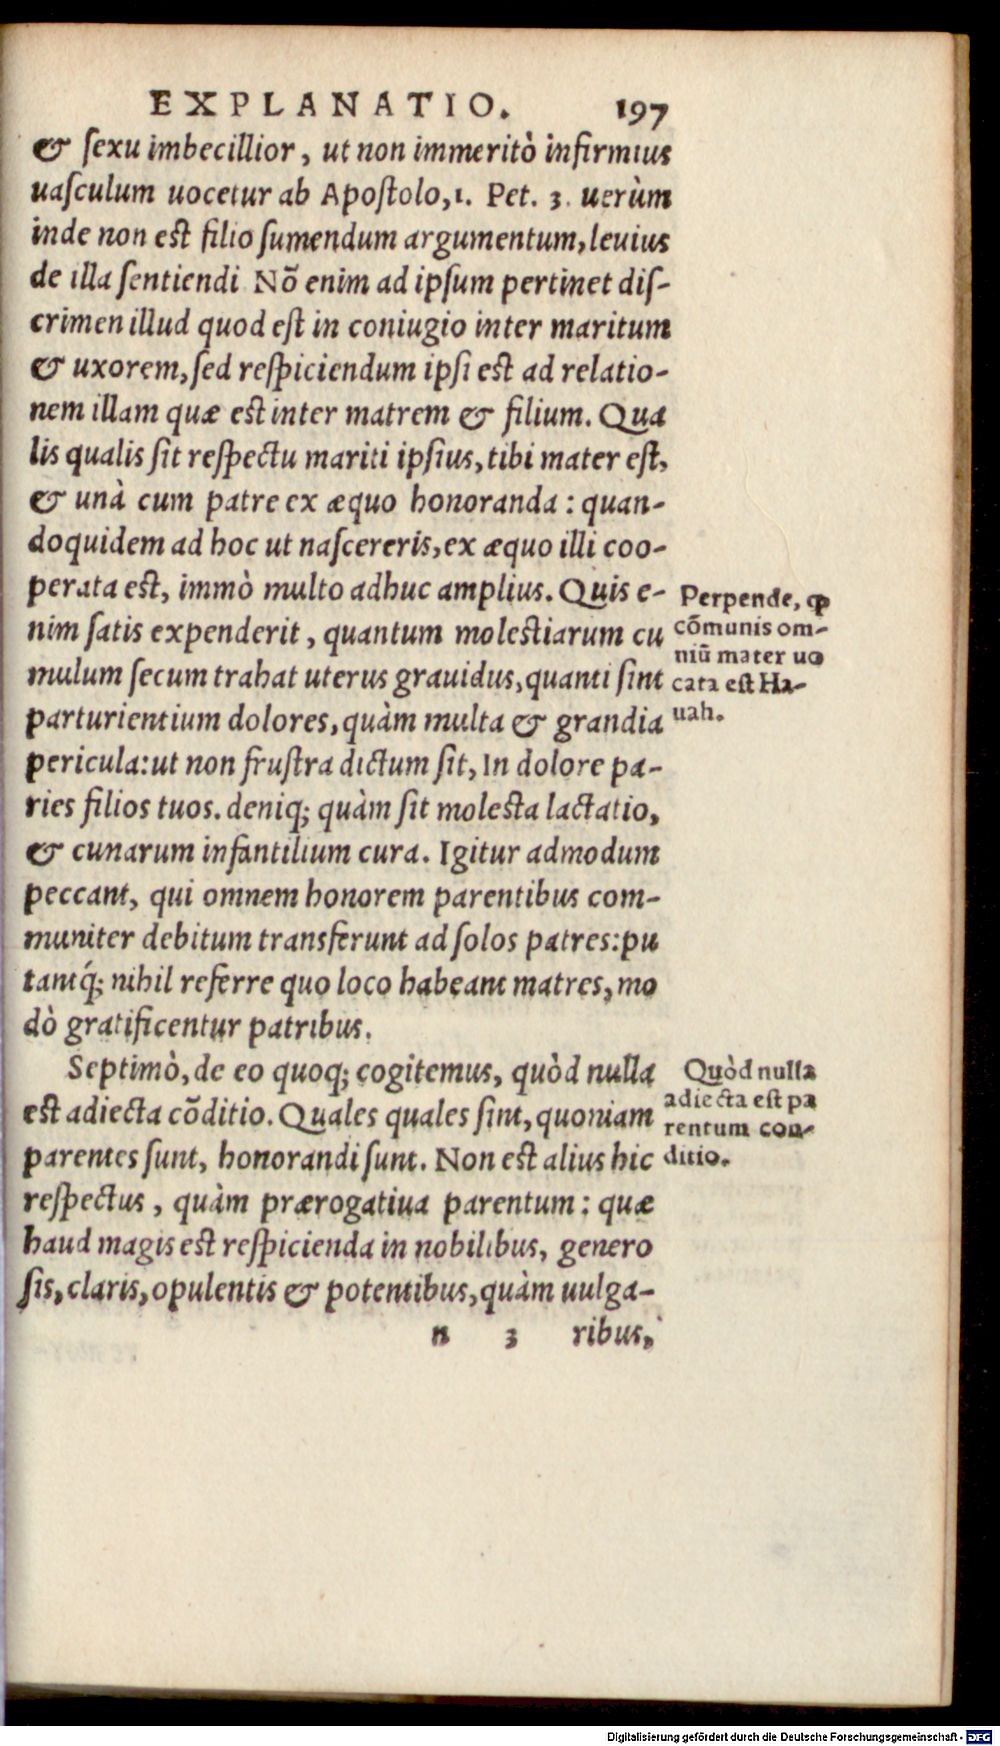 EXPLANATIO. 197
& ſexu imbecillior, ut non immeritò infirmius
uaſculum uocetur ab Apoſtolo, 1. Pet. 3. uerùm
inde non est filio ſumendum argumentum, leuius
de illa ſentiendi Nõ enim ad ipſum pertinet diſ-
crimen illud quod eſt in coniugio inter maritum
& uxorem, ſed reſpiciendum ipſi eſt ad relatio-
nem illam quæ eſt inter matrem & filium. Qua
lis qualis ſit reſpectu mariti ipſius, tibi mater eſt,
& unà cum patre ex æquo honoranda: quan-
doquidem ad hoc ut naſcereris, ex æquo illi coo-
perata eſt, immò multo adhuc amplius. Quis e-
nim ſatis expenderit, quantum moleſtiarum cu
mulum ſecum trahat uterus grauidus, quanti ſint
parturientium dolores, quàm multa & grandia
pericula: ut non fruſtra dictum ſit, In dolore pa-
ries filios tuos. deniq; quàm ſit moleſta lactatio,
& cunarum infantilium cura. Igitur admodum
peccant, qui omnem honorem parentibus com-
muniter debitum transferunt ad ſolos patres: pu
tantq́; nihil referre quo loco habeant matres, mo
dò gratificentur patribus.
Perpende, ꝙ
cõmunis om-
niũ mater uo
cata eſt Ha-
uah.
Septimò, de eo quoq; cogitemus, quòd nulla
eſt adiecta cõditio. Quales quales ſint, quoniam
parentes ſunt, honorandi ſunt. Non eſt alius hic
reſpectus, quàm prærogatiua parentum: quæ
haud magis eſt reſpicienda in nobilibus, genero
ſis, claris, opulentis & potentibus, quàm uulga-
Quòd nulla
adiecta eſt pa
rentum con-
ditio.
n 3 ribus,
Digitalisierung gefördert durch die Deutsche Forschungsgemeinschaft - DFG